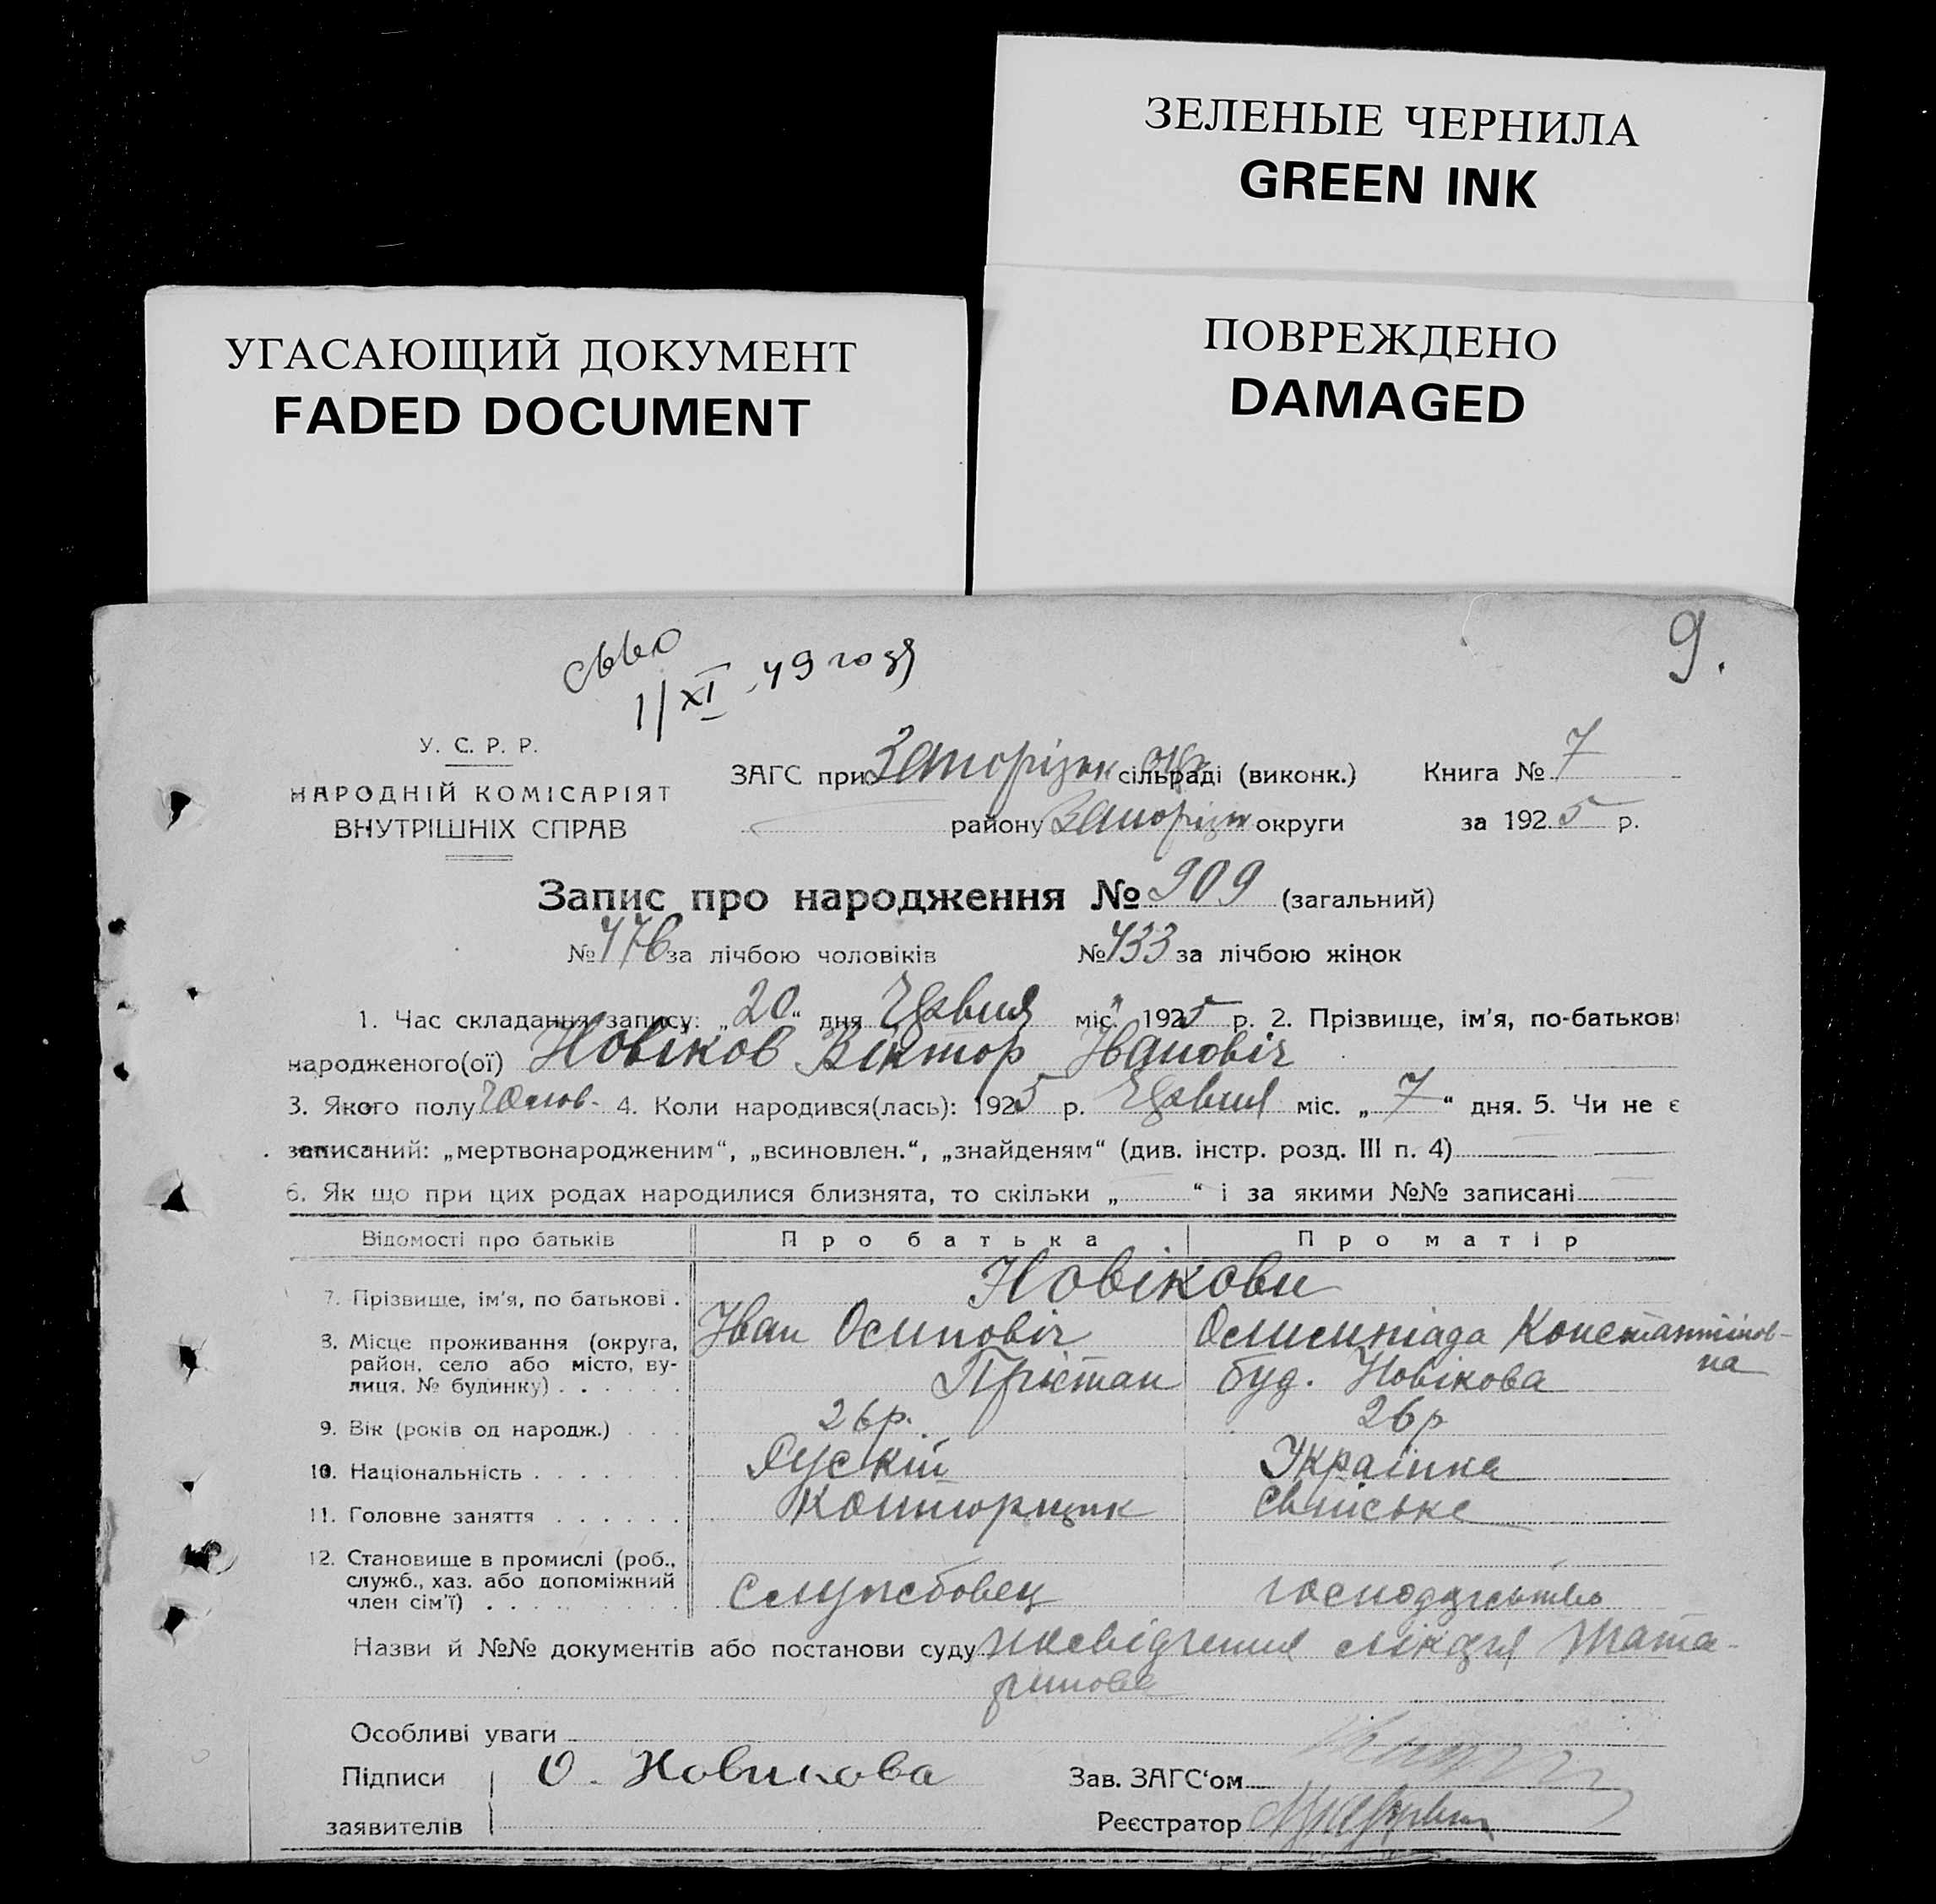 ЗЕЛЕНЫЕ ЧЕРНИЛА
GREEN INK
УГАСАЮЩИЙ ДОКУМЕНТ
FADED DOCUMENT
ПОВРЕЖДЕНО
DAMAGED
9.
1/XI-49 года
У. С. Р. Р.
НАРОДНІЙ КОМІСАРІЯТ
ВНУТРІШНІХ СПРАВ
ЗАГС при Запорізьк окр сільраді (виконк.) Книга № 7
району Запорізьк округи за 1925 р.
Запис про народження № 909 (загальний)
№ 476 за лічбою чоловіків № 433 за лічбою жінок
1. Час складання запису: „20“ дня Червня міс. 1925 р. 2. Прізвище, ім'я, по-батькові
народженого(ої) Новіков Віктор Івановіч
3. Якого полу Чолов. 4. Коли народився(лась): 1925 р. Червня міс. „7“ дня. 5. Чи не є
записаний: „мертвонародженим“, „всиновлен.“, „знайденям“ (див. інстр. розд. III п. 4)
6. Як що при цих родах народилися близнята, то скільки „ “ і за якими №№ записані
Відомості про батьків Про батька Про матір
7. Прізвище, ім'я, по батькові . Новікови
Іван Осиповіч Олимпіада Констянтінов-
на
8. Місце проживання (округа,
район, село або місто, ву-
лиця, № будинку) . . . . . . Прістан буд. Новікова
9. Вік (років од народж.) . . . 26 р. 26 р
10. Національність . . . . . Рускій Українка
11. Головне заняття . . . . . . Конторщик сільське
12. Становище в промислі (роб.,
служб., хаз. або допоміжний
член сім'ї) . . . . . . . . Службовец господарство
Назви й №№ документів або постанови суду посвідчення лікаря Тата-
ринова
Особливі уваги
Підписи О. Новикова Зав. ЗАГС'ом
заявителів Реєстратор